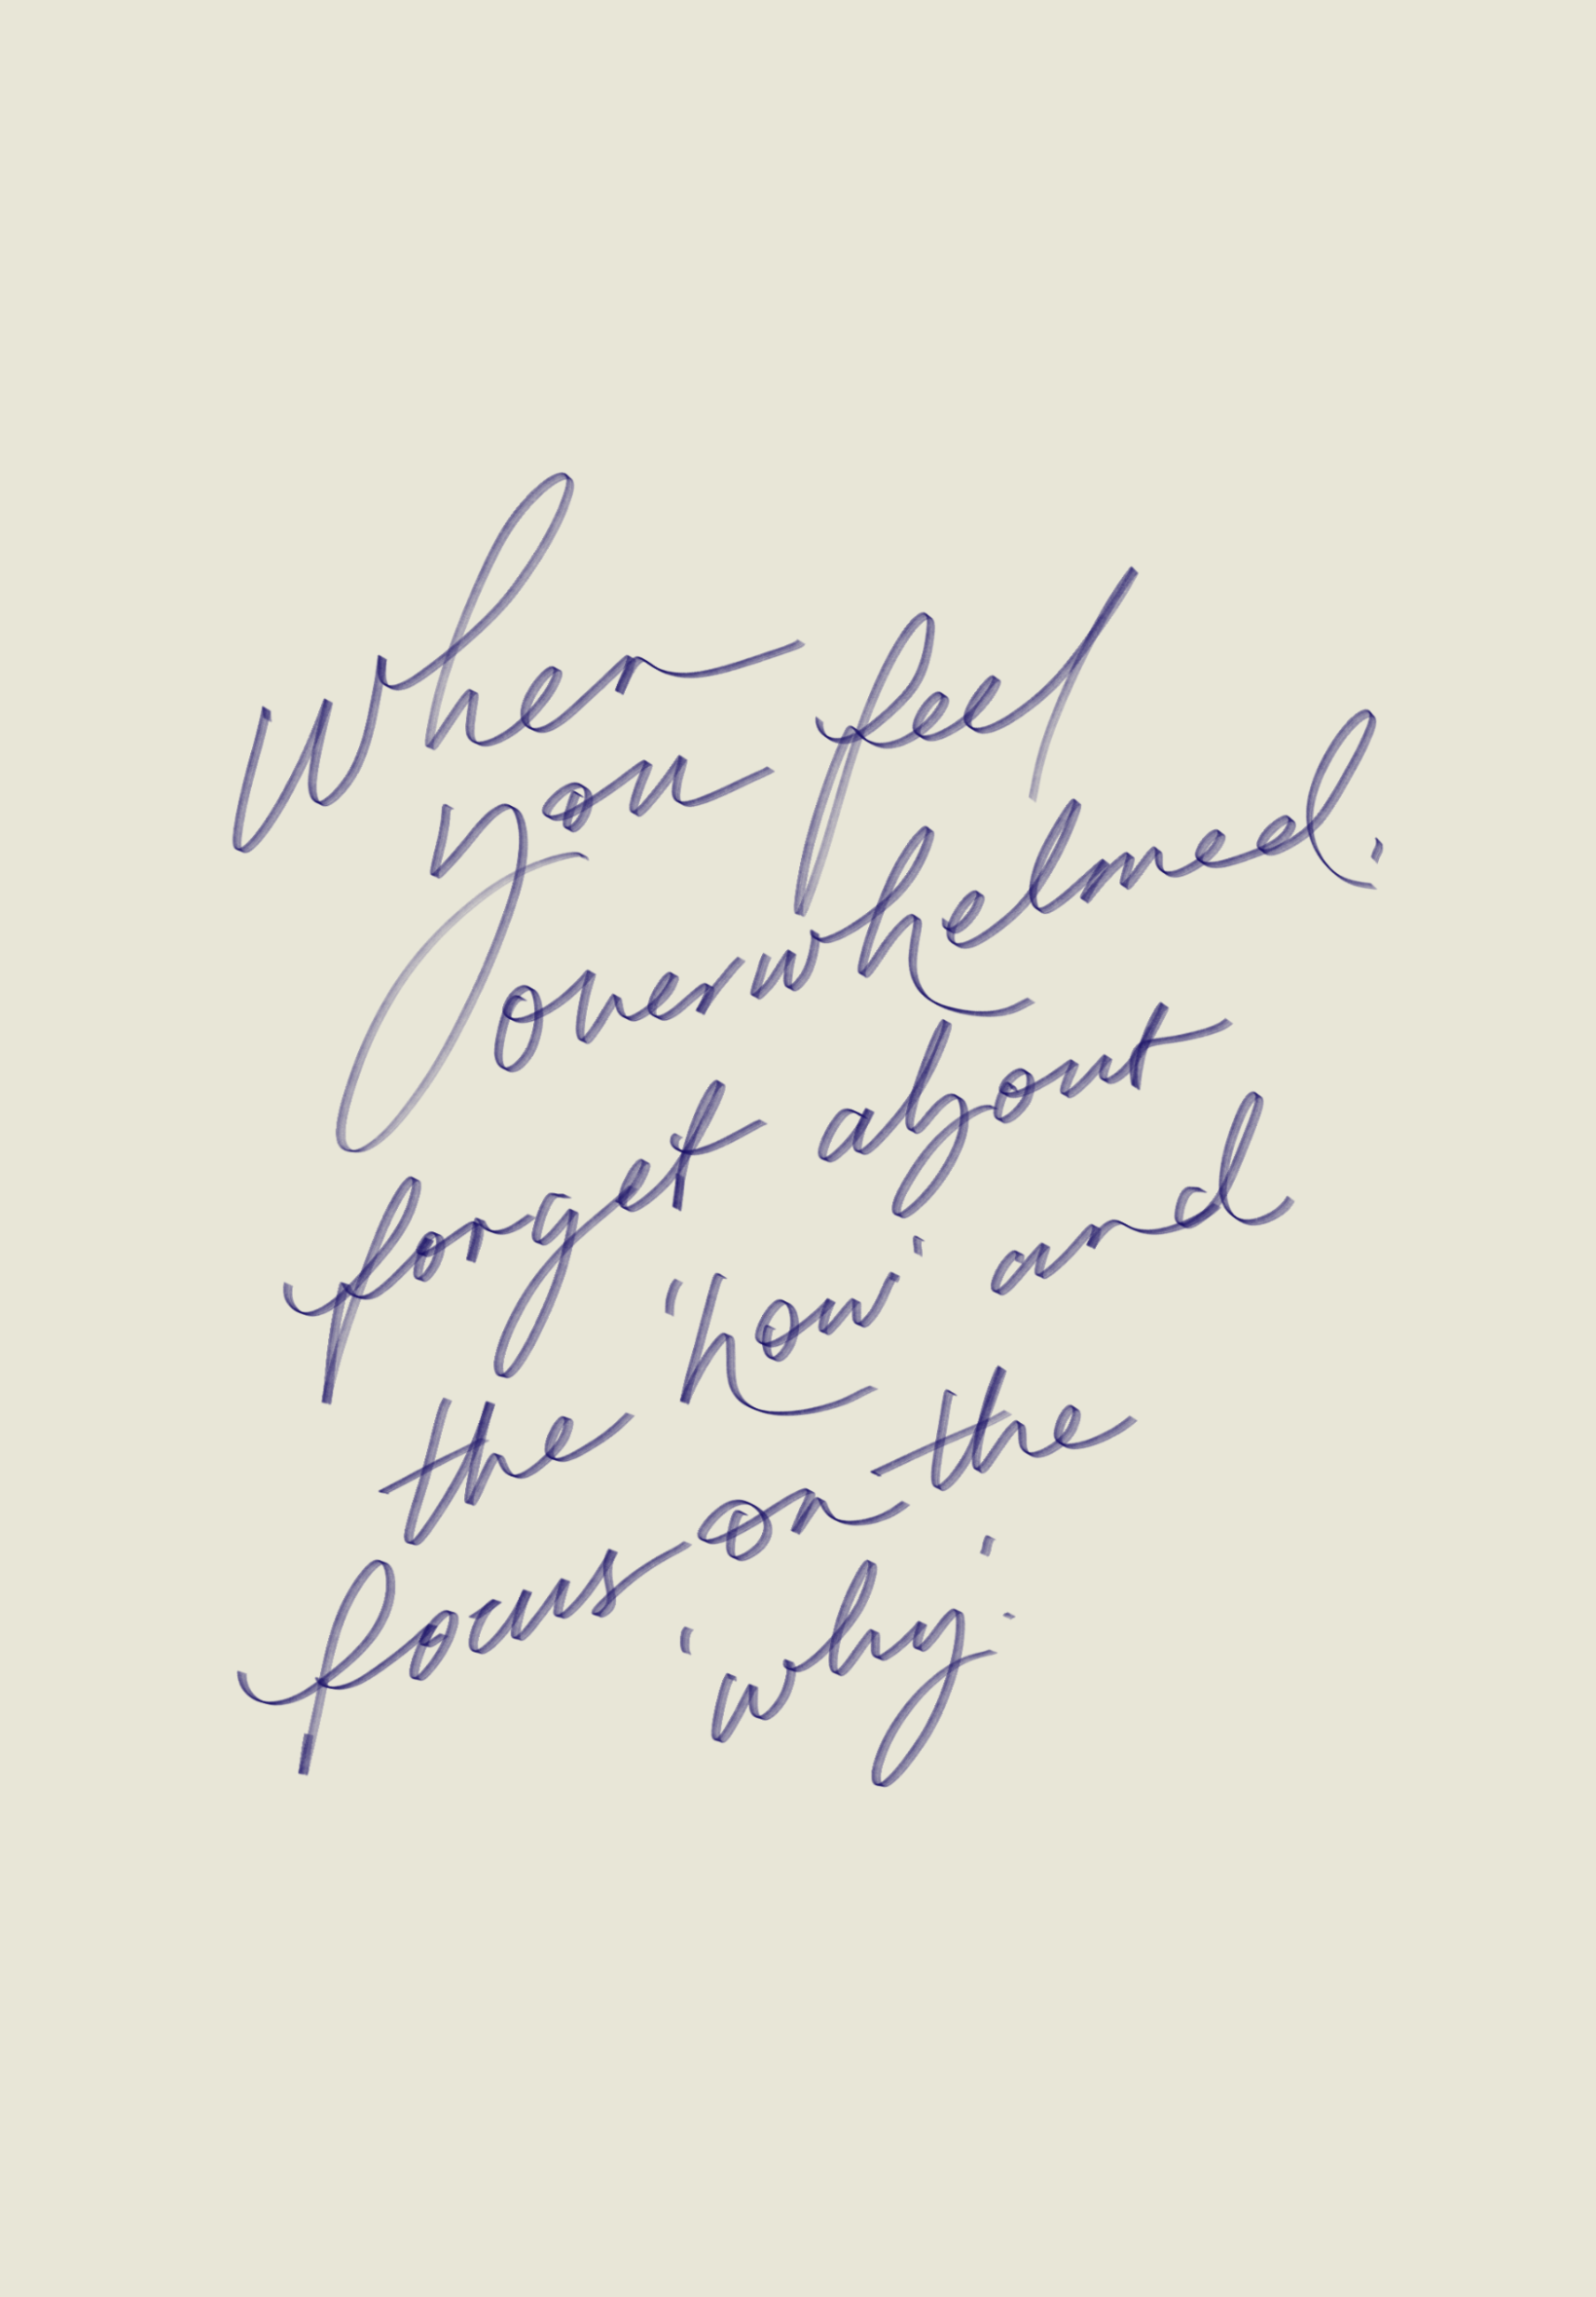 When
you feel
overwhelmed,
forget about
the 'how' and
focus on the
'why'.